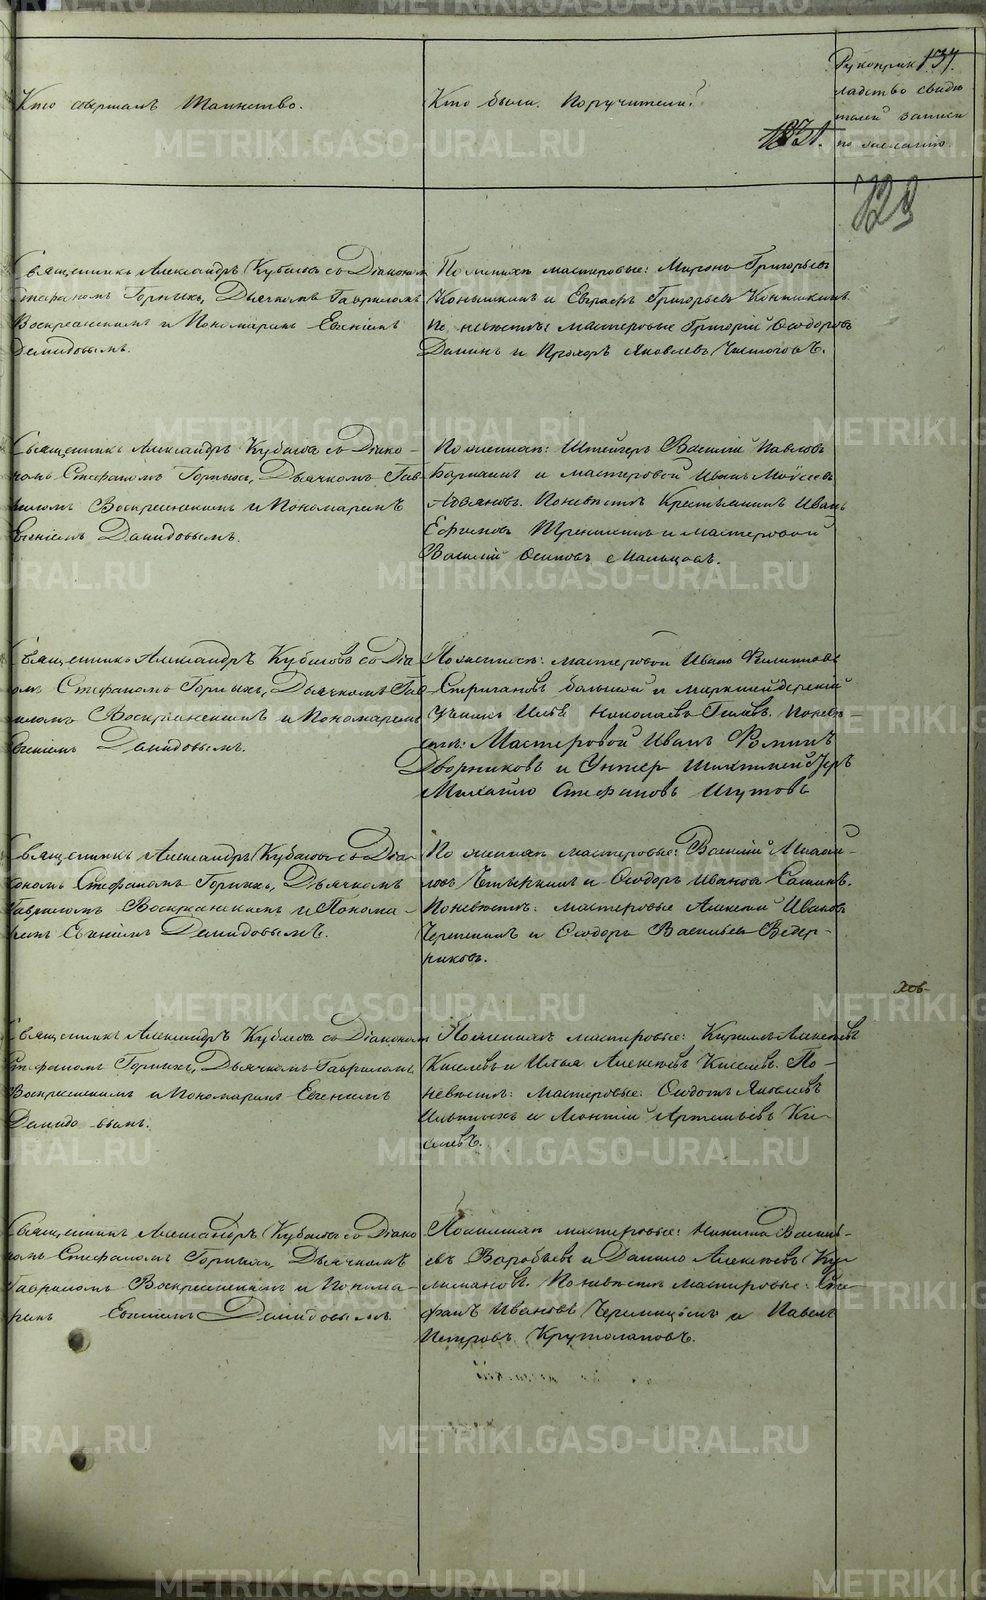 137.
Кто совершалъ Таинство.
Кто были Поручители?
Рукоприк
ладство свиде
телей записи
по желанію.
Священникъ Александръ Кубасовъ съ Діакономъ
Стефаномъ Горныхъ, Дьячкомъ Гавриломъ
Воскресенскимъ и Пономаремъ Евгеніемъ
Демидовымъ.
По женихѣ мастеровые: Миронъ Григорьевъ
и Евграфъ Григорьевъ
По невѣстѣ мастеровые Григорій Ѳеодоровъ
и Прохоръ Яковлевъ
Священникъ Александръ Кубасовъ съ Діако-
номъ Стефаномъ Горныхъ, Дьячкомъ Гав-
риломъ Воскресенскимъ и Пономаремъ
Евгеніемъ Демидовымъ.
По женихѣ: Штейгеръ Василій Павловъ
и мастеровой Иванъ Моисеевъ
По невѣстѣ Крестьянинъ Иванъ
Ефимовъ и мастеровой
Василій Осиповъ Мальцовъ.
Священникъ Александръ Кубасовъ съ Діа-
номъ Стефаномъ Горныхъ, Дьячкомъ Гав-
риломъ Воскресенскимъ и Пономаремъ
Евгеніемъ Демидовымъ.
По женихѣ: мастеровой Иванъ Филипповъ
большой и маркшейдерскій
ученикъ Илья Николаевъ По невѣ-
стѣ: Мастеровой Иванъ Фоминъ
Дворниковъ и Унтер Шихтмейстеръ
Михайло Стефановъ Шутовъ
Священникъ Александръ Кубасовъ съ Діа-
кономъ Стефаномъ Горныхъ, Дьячкомъ
Гавриломъ Воскресенскимъ и Понома-
ремъ Евгеніемъ Демидовымъ.
По женихѣ мастеровые: Василій Михай-
ловъ и Ѳеодоръ Ивановъ
По невѣстѣ: мастеровые Алексѣй Ивановъ
и Ѳеодоръ Васильевъ Ведер-
никовъ.
Священникъ Александръ Кубасовъ съ Діакономъ
Стефаномъ Горныхъ, Дьячкомъ Гавриломъ
Воскресенскимъ и Пономаремъ Евгеніемъ
Демидовымъ.
По женихѣ мастеровые: Алексѣевъ
Киселевъ и Илья Алексѣевъ Киселевъ. По
невѣстѣ: Мастеровые: Ѳедотъ Яковлевъ
и Леонтій Артемьевъ Ки-
селевъ.
Священникъ Александръ Кубасовъ съ Діако-
номъ Стефаномъ Горныхъ, Дьячкомъ
Гавриломъ Воскресенскимъ и Понома-
ремъ Евгеніемъ Демидовымъ.
По женихѣ мастеровые: Никита Василь-
евъ Воробьевъ и Данило Алексѣевъ
По невѣстѣ мастеровые: Сте-
фанъ Ивановъ и Павелъ
Петровъ Круталаповъ.
METRIKI.GASO-URAL.RU